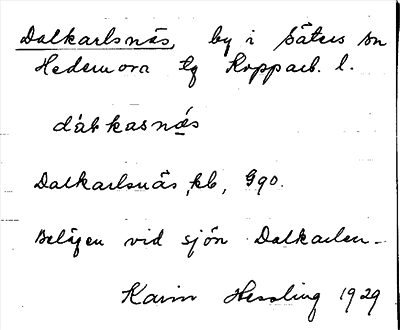 Dalkarlsnäs, by i Säters sn
Hedemora tg Kopparb. l.
dáłkasnä̀s
Dalkarlsnäs, kb, G90.
Belägen vid sjön Dalkarlen.
Karin Hessling 1929